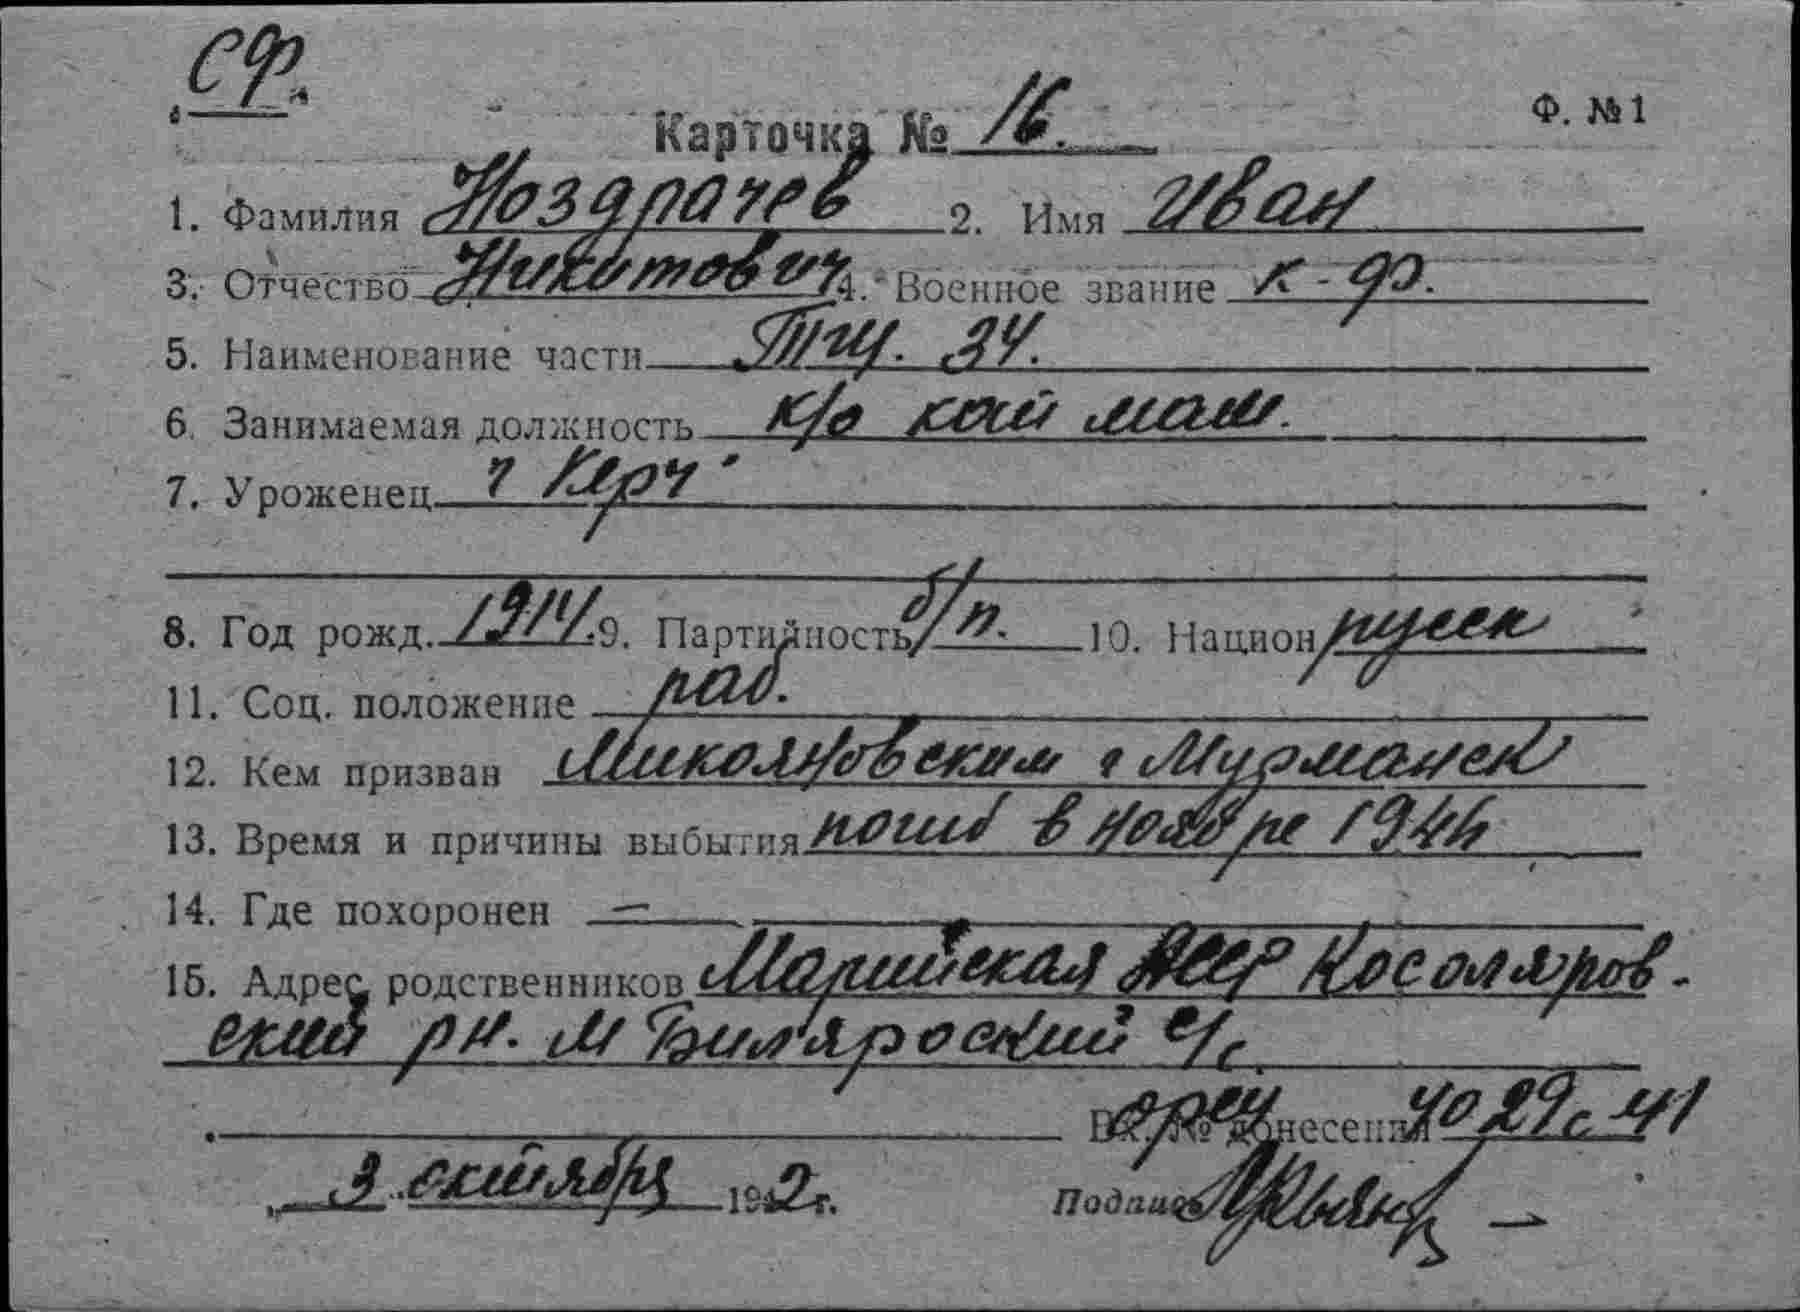 СФ.
Ф. №1
Карточка № 16.
1. Фамилия Ноздрачев 2. Имя Иван
3. Отчество Никитович 4. Военное звание к-ф.
5. Наименование части Тщ. 34.
6. Занимаемая должность к/о
7. Уроженец г Керч
8. Год рожд. 1914. 9. Партийность б/п. 10. Национ русск
11. Соц. положение раб.
12. Кем призван Микояновским г Мурманск
13. Время и причины выбытия погиб в ноябре 1944
14. Где похоронен —
15. Адрес родственников Марийская АССР Косоляров-
ский рн. М Биляроский с/с
Вх. № донесения 4029с 41
„ 3 “ сентября 1942 г. Подпись